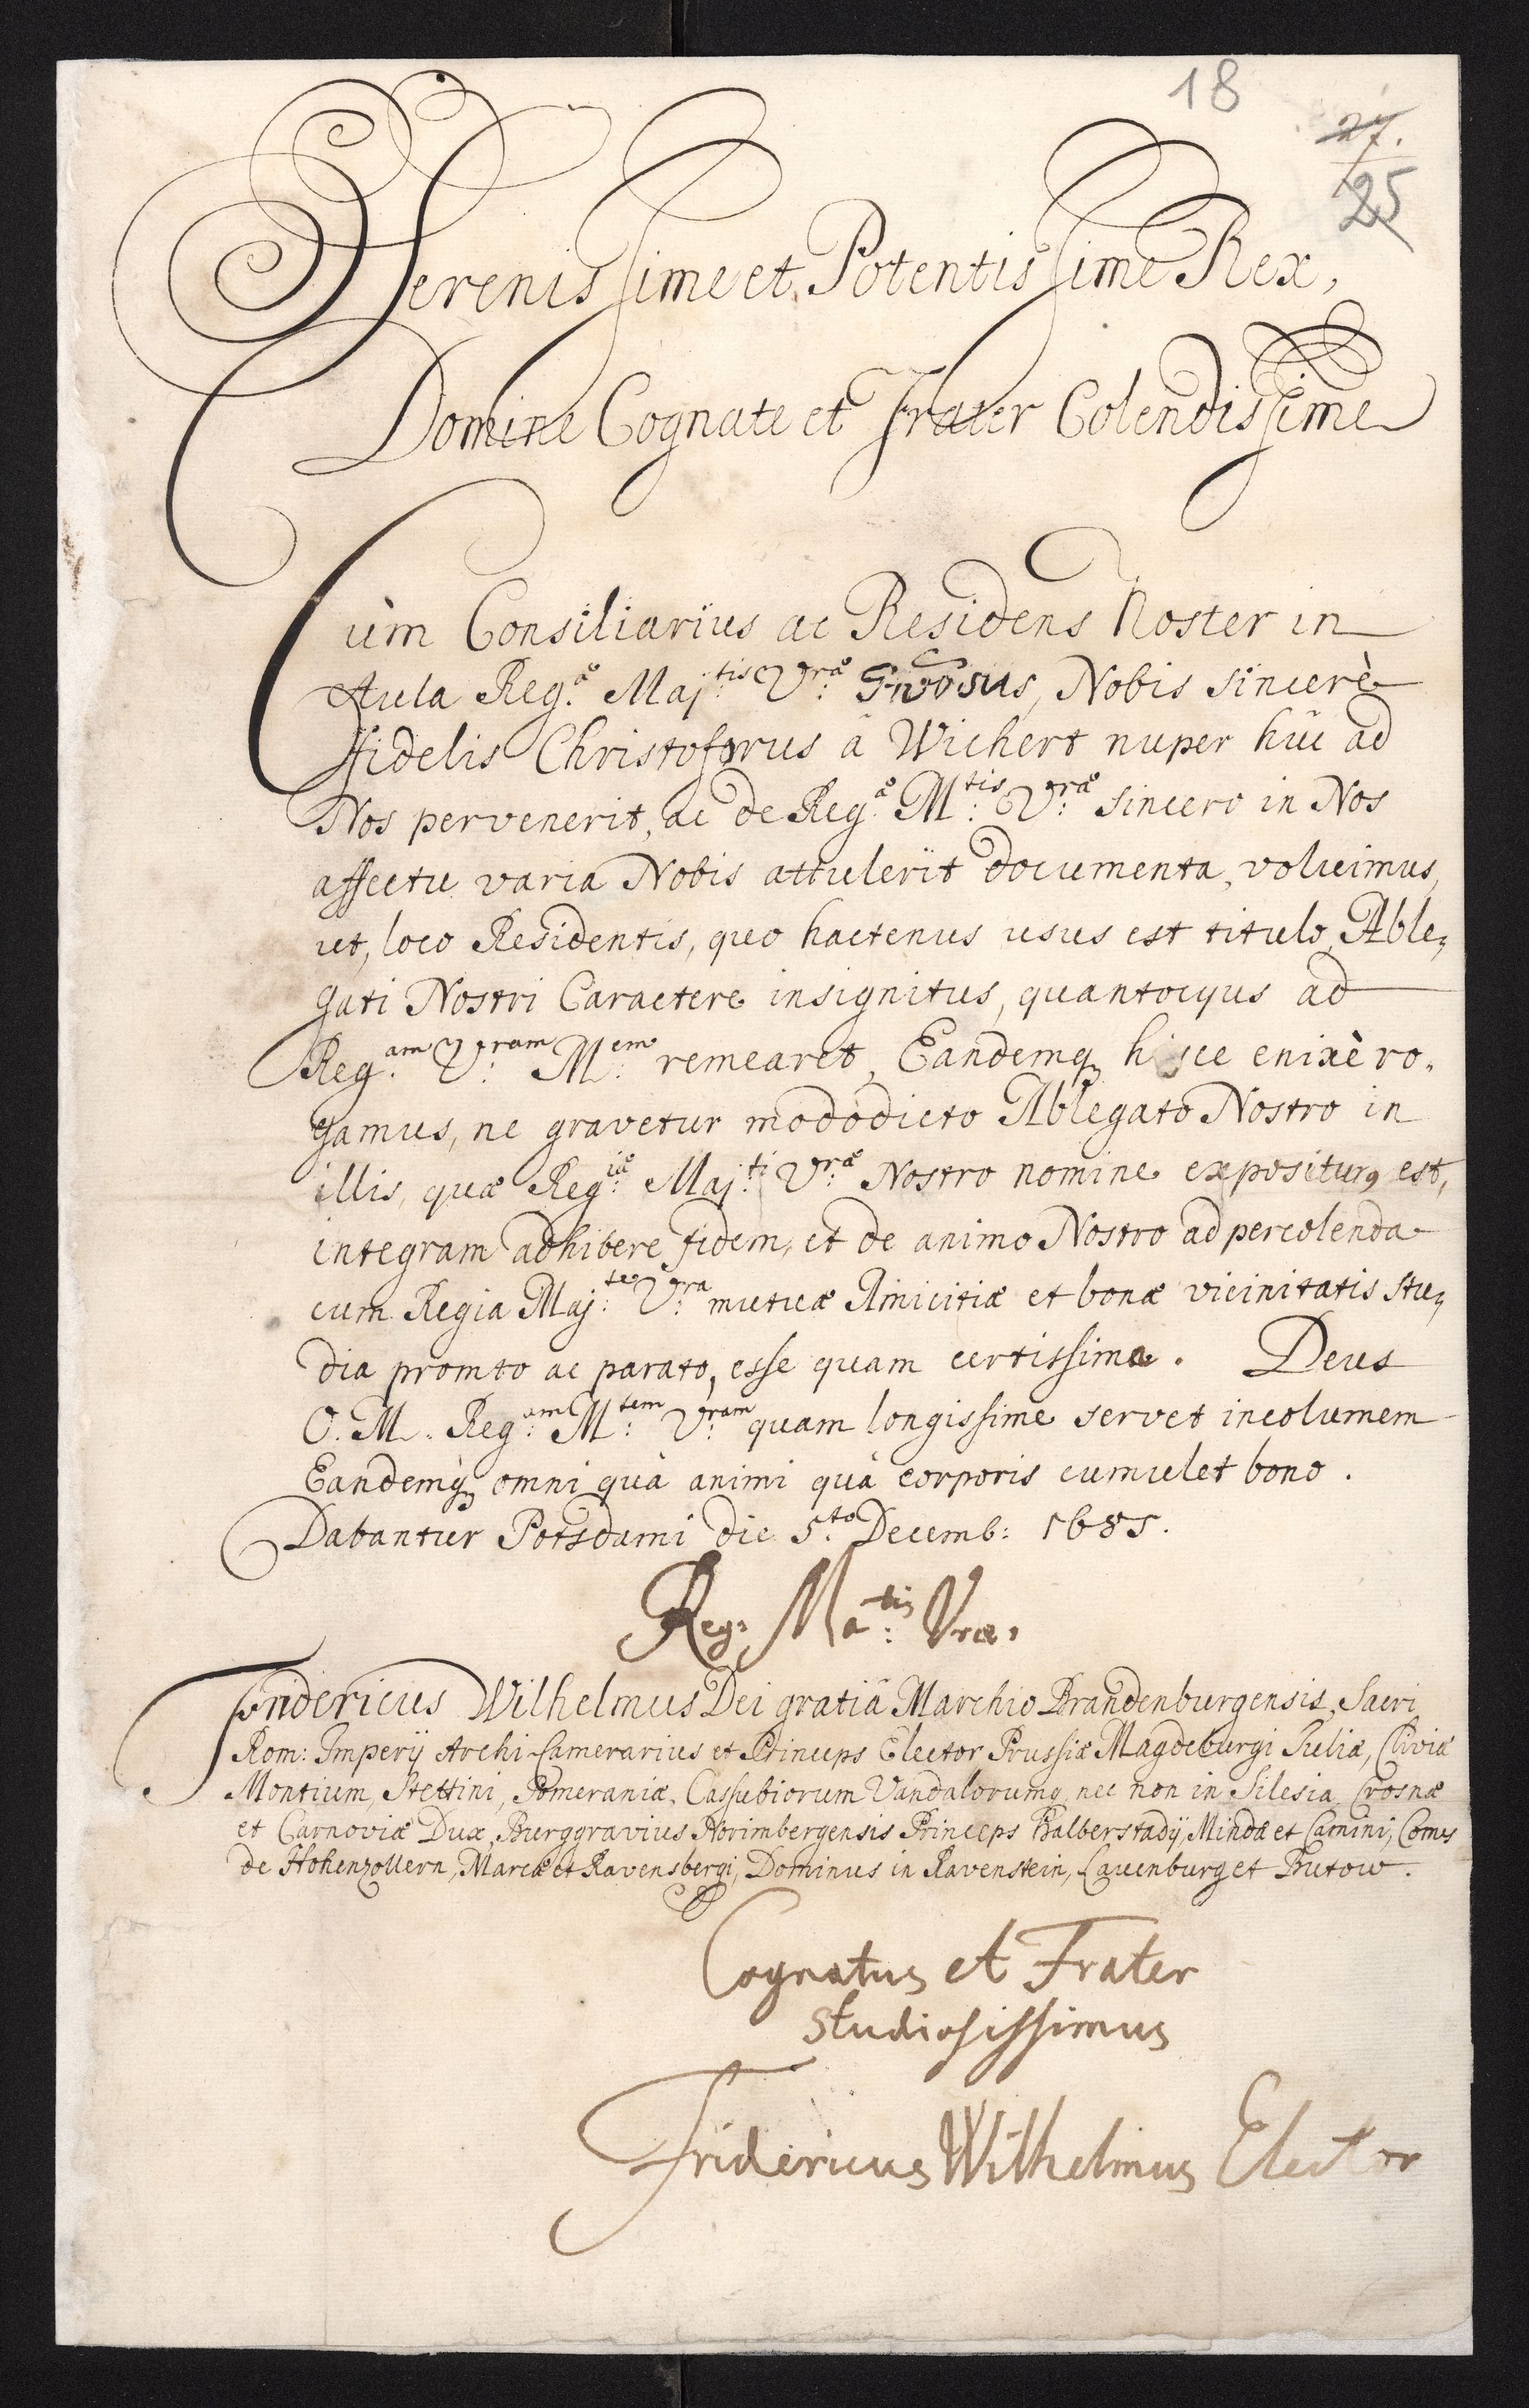 18
27.
25
Serenissime et Potentissime Rex,
Domine Cognate et Frater Colendissime
Cùm Consiliarius ac Residens Noster in
Aula Reg.æ Maj:tis V:ræ Gnosus, Nobis sincerè
fidelis Christoforus à Wichert nuper hûc ad
Nos pervenerit, ac de Reg.æ M:tis V:ræ sincero in Nos
affectu varia Nobis attulerit documenta, voluimus,
ut, loco Residentis, quo hactenus usus est titulo, Able-
gati Nostri Caractere insignitus, quantocyus ad
Reg:am V:ram M:em remearet, Eandemq hisce enixè ro-
gamus, ne gravetur mododicto Ablegato Nostro in
illis, quæ Reg:iæ Maj:ti V:ræ Nostro nomine expositurꝰ est,
integram adhibere fidem, et de animo Nostro ad percolenda
cum Regia Maj:te V:ra mutuæ Amicitiæ et bonæ vicinitatis stu-
dia promto ac parato, esse quam certissima. Deus
O. M. Reg:am M:tem V:ram quam longissime servet incolumem
Eandemq; omni quà animi quà corporis cumulet bono.
Dabantur Potsdami die 5.to Decemb: 1685.
Reg. Ma:tis Vræ.
Fridericus Wilhelmus Dei gratiâ Marchio Brandenburgensis, Sacri
Rom: Imperij Archi-Camerarius et Princeps Elector Prussiæ Magdeburgi Juliæ, Cliviæ
Montium, Stettini, Pomeraniæ, Cassubiorum Vandalorumq, nec non in Silesia Crosnæ
et Carnoviæ Dux, Burggravius Norimbergensis Princeps Halberstadij, Mindæ et Camini, Comes
de Hohenzollern, Marcæ et Ravensbergi, Dominus in Ravenstein, Lauenburg et Butow.
Cognatus et Frater
studiosissimus
Fridericus Wilhelmus Elector